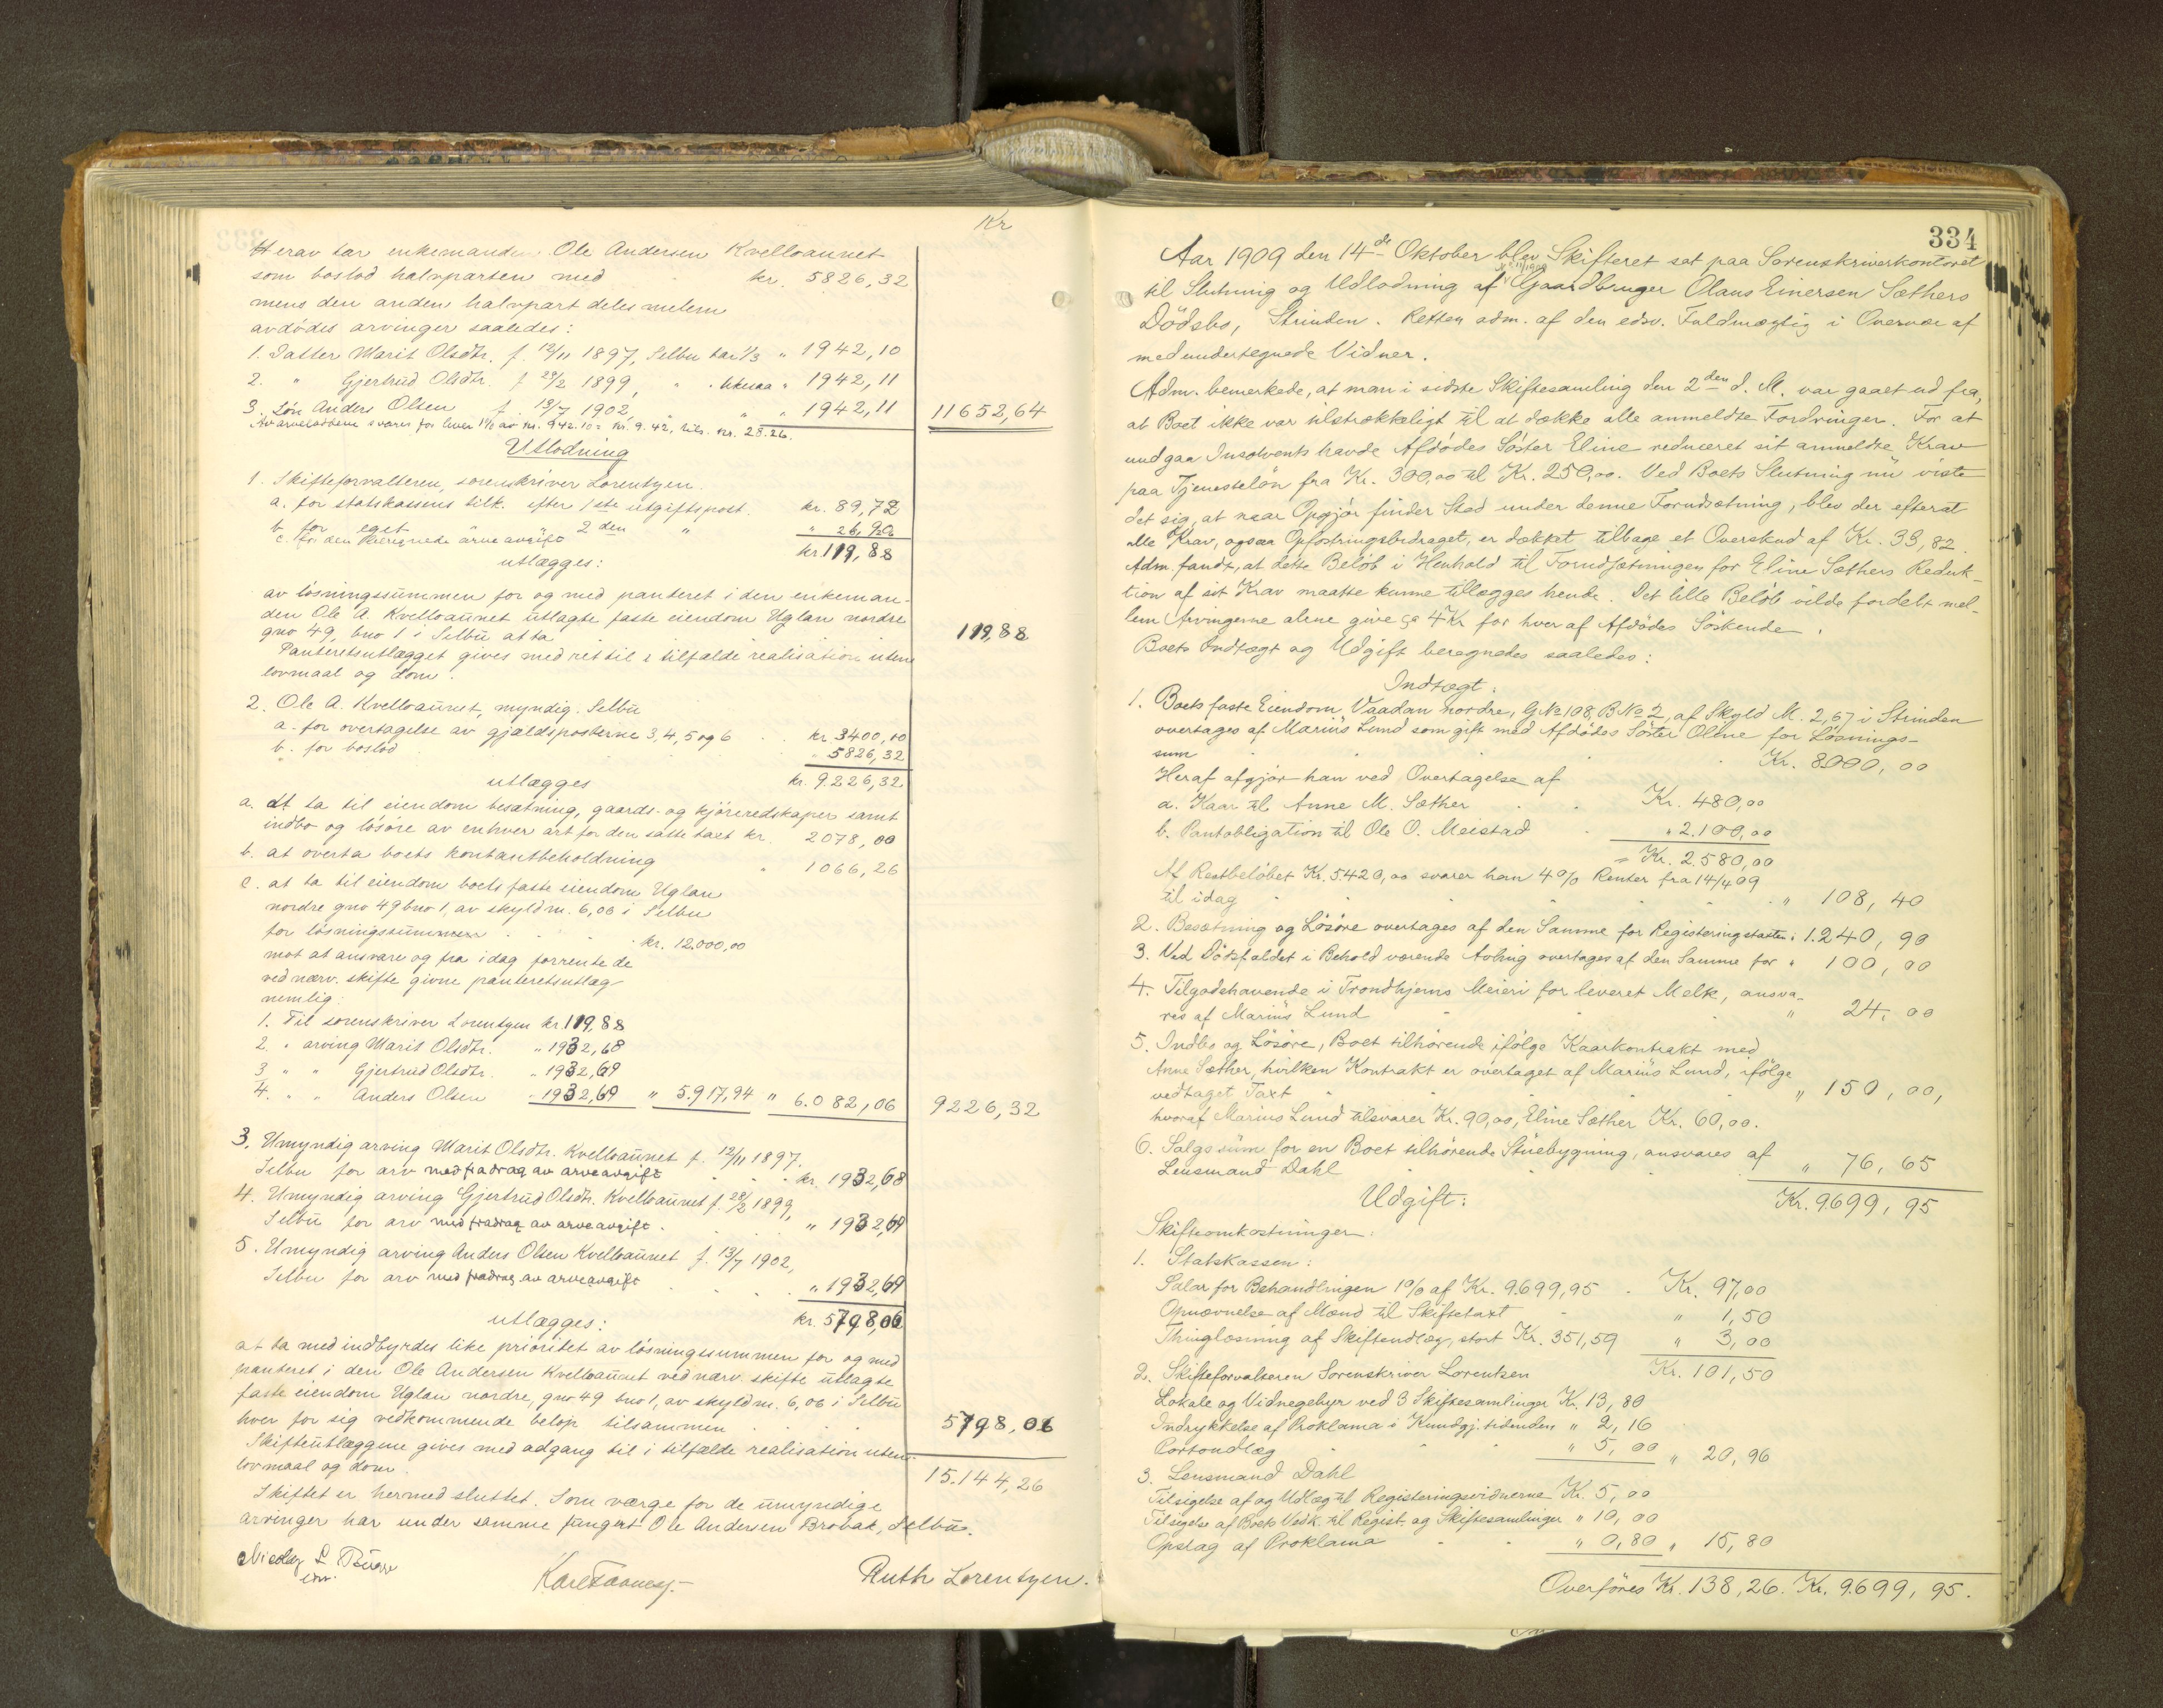 Kr
Herav tar enkemanden Ole Andersen Kvelloaunet
som boslod halvparten med kr. 5826,32
mens den anden halvpart deles mellem
avdödes arvinger saaledes:
1. Datter Marit Olsdtr. f. 12/11 1897, Selbu tar 1/3 " 1942,10
2. " Gjertrud Olsdtr. f 28/2 1899, " " likesaa " 1942,11
3. Sön Anders Olsen f. 13/7 1902, " " " 1942,11 11652,64
Av arveloddene svares for hver 1% av kr. 942.10 = kr. 9.42, tils. kr. 28.26.
Utlodning
1. Skifteforvalteren, sorenskriver Lorentzen.
a. for statskassens tilk. efter 1ste utgiftspost. kr. 89,72
b. for eget " " 2den " " 26,90
c. for den beregnede arveavgift
kr 119,88
utlægges:
av lösningssummen for og med panteret i den enkeman-
den Ole A. Kvelloaunet utlagte faste eiendom Uglan nordre
gno 49, bno 1 i Selbu at ta 119,88
Panteretsutlægget gives med ret til i tilfælde realisation uten
lovmaal og dom.
2. Ole A. Kvelloaunet, myndig. Selbu
a. for overtagelse av gjældsposterne 3,4,5 og 6 kr. 3400,00
b. for boslod " 5826,32
utlægges kr. 9226,32
a. at ta til eiendom besætning, gaards- og kjöreredskaper samt
indbo og lösöre av enhver art for den satte taxt kr. 2078,00
b. at overta boets kontantbeholdning " 1066,26
c. at ta til eiendom boets faste eiendom Uglan
nordre gno 49 bno 1, av skyld m. 6,06 i Selbu
for lösningssummen kr. 12.000,00
mot at ansvare og fra idag forrente de
ved nærv. skifte givne panteretsutlæg
nemlig:
1. Til sorenskriver Lorentzen kr. 119,88
2. " arving Marit Olsdtr. " 1932,68
3 " " Gjertrud Olsdtr. " 1932,69
4. " " Anders Olsen " 1932,69 " 5.917,94 " 6.082,06 9226,32
3. Umyndig arving Marit Olsdtr. Kvelloaunet f. 12/11 1897.
Selbu for arv med fradrag av arveavgift kr. 1932,68
4. Umyndig arving Gjertrud Olsdtr. Kvelloaunet f. 28/2 1899,
Selbu for arv med fradrag av arveavgift " 1932,69
5. Umyndig arving Anders Olsen Kvelloaunet f. 13/7 1902,
Selbu for arv med fradrag av arveavgift " 1932,69
utlægges: kr. 5798,06
at ta med indbyrdes like prioritet av lösningssummen for og med
panteret i den Ole Andersen Kvelloaunet ved nærv. skifte utlagte
faste eiendom Uglan nordre, gno 49 bno 1, av skyld m. 6,06 i Selbu
hver for sig vedkommende belöp tilsammen 5798,06
Skifteutlæggene gives med adgang til i tilfælde realisation uten
lovmaal og dom. 15.144,26
Skiftet er hermed sluttet. Som værge for de umyndige
arvinger har under samme fungert Ole Andersen Brobak, Selbu.
Ruth Lorentzen.
334
Aar 1909 den 14de Oktober blev Skifteret sat paa Sorenskriverkontoret
til Slutning og Udlodning af Gaardbruger Olaus Einersen Sæthers
Dödsbo, Strinden. Retten adm. af den edsv. Fuldmægtig i Overvær af
medundertegnede Vidner.
Adm. bemerkede, at man i sidste Skiftesamling den 2den d. M. var gaaet ud fra,
at Boet ikke var tilstrækkeligt til at dække alle anmeldte Fordringer. For at
undgaa Insolvents havde Afdödes Söster Eline reduceret sit anmeldte Krav
paa Tjenestelön fra Kr. 300,00 til Kr. 250,00. Ved Boets Slutning nu viste
det sig, at naar Opgjör finder Sted under denne Forudsætning, blev der efterat
alle Krav, ogsaa Opfostringsbidraget, er dækket tilbage et Overskud af Kr. 33,82.
Adm. fandt, at dette Belöb i Henhold til Forudsætningen for Eline Sæthers Reduk-
tion af sit Krav maatte kunne tillægges hende. Det lille Belöb vilde fordelt mel-
lem Arvingerne alene give ca 4 Kr for hver af Afdödes Söskende.
Boets Indtægt og Udgift beregnedes saaledes:
Indtægt.
1. Boets faste Eiendom Vaadan nordre, GNo 108, BNo 2, af Skyld M. 2,67 i Strinden
overtages af Marius Lund som gift med Afdödes Söster Oline for Lösnings-
sum Kr. 8000,00
Heraf afgjör han ved Overtagelse af
a. Kaar til Anne M. Sæther Kr. 480,00
b. Pantobligation til Ole O. Meistad " 2.100,00
= Kr. 2.580,00
Af Restbelöbet Kr. 5.420,00 svarer han 4% Renter fra 14/4 09
til idag " 108,40
2. Besætning og Lösöre overtages af den Samme for Registeringstaxten " 1.240,90
3. Ved Dödsfaldet i Behold værende Avling overtages af den Samme for " 100,00
4. Tilgodehavende i Trondhjems Meieri for leveret Melk, ansva-
res af Marius Lund " 24,00
5. Indbo og Lösöre, Boet tilhörende ifölge Kaarkontrakt med
Anne Sæther, hvilken Kontrakt er overtaget af Marius Lund, ifölge
vedtaget Taxt " 150,00,
hvoraf Marius Lund tilsvarer Kr. 90,00, Eline Sæther Kr. 60,00.
6. Salgssum for en Boet tilhörende Stuebygning, ansvares af
Lensmand Dahl " 76,65
Kr. 9699,95
Udgift:
Skifteomkostninger:
1. Statskassen:
Salær for Behandlingen 1% af Kr. 9.699,95 Kr. 97,00
Opnævnelse af Mænd til Skiftetaxt " 1,50
Thinglæsning af Skifteudlæg, stort Kr. 351,59 " 3,00
Kr. 101,50
2. Skifteforvalteren Sorenskriver Lorentzen
Lokale og Vidnegebyr ved 3 Skiftesamlinger Kr. 13,80
Indrykkelse af Proklama i Kundgj. tidenden " 2,16
Portoudlæg " 5,00 " 20,96
3. Lensmand Dahl
Tilsigelse af og Udlæg til Registeringsvidnerne Kr. 5,00
Tilsigelse af Boets Vedk. til Regist. og Skiftesamlinger " 10,00
Opslag af Proklama " 0,80 " 15,80
Overföres Kr. 138,26. Kr. 9.699,95.